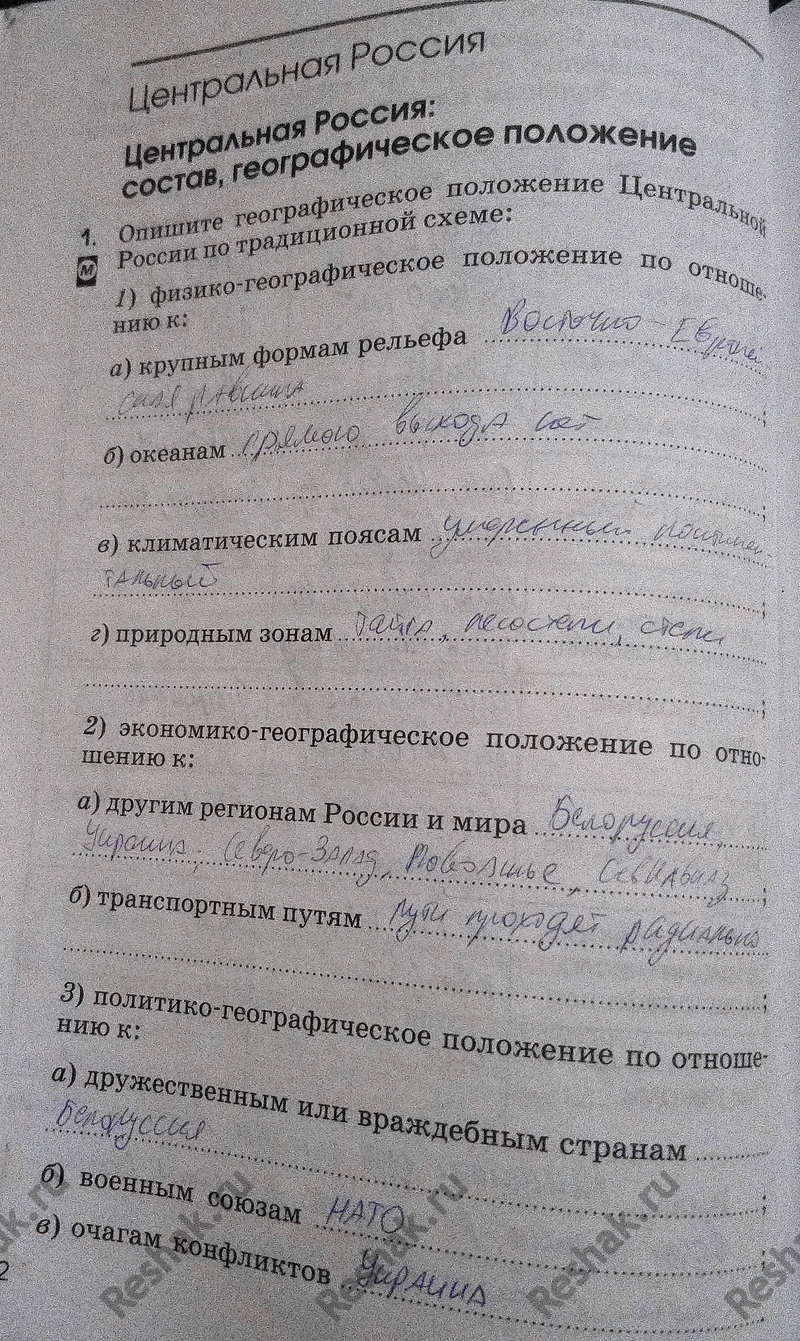 Центральная Россия
Центральная Россия:
состав, географическое положение
1. Опишите географическое положение Центральной
М России по традиционной схеме:
1) физико-географическое положение по отноше-
нию к:
а) крупным формам рельефа Восточно-Европей
ская равнина ;
б) океанам прямого выхода нет
;
в) климатическим поясам умеренный континен-
тальный ;
г) природным зонам тайга, лесостепи, степи
;
2) экономико-географическое положение по отно-
шению к:
а) другим регионам России и мира Белоруссия,
Украина, Северо-Запад, Поволжье, ;
б) транспортным путям пути проходят радиально
;
3) политико-географическое положение по отноше-
нию к:
а) дружественным или враждебным странам
Белоруссия ;
б) военным союзам НАТО ;
в) очагам конфликтов Украина
2
Reshak.ru Reshak.ru Reshak.ru Reshak.ru